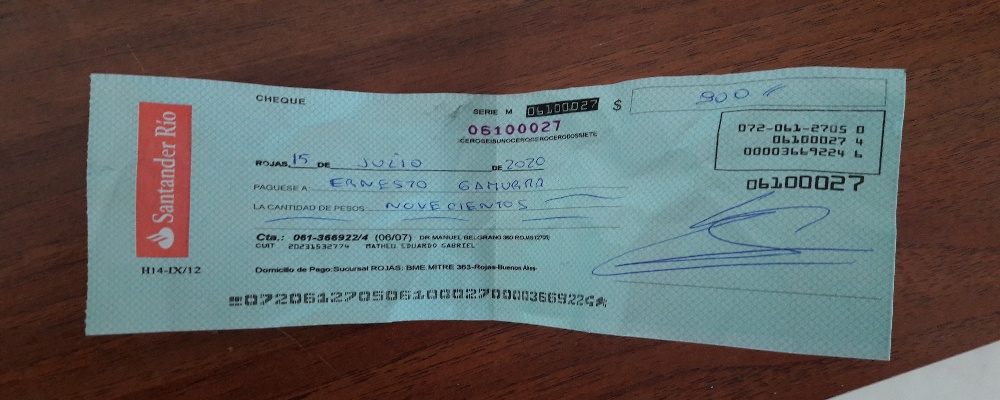 Santander Río
H14-IX/12
CHEQUE
SERIE M 06100027 $ 900
06100027
CEROSEISUNOCEROCEROCERODOSSIETE
072-061-2705 0
06100027 4
00003669224 6
06100027
ROJAS, 15 DE JULIO DE 2020
PAGUESE A ERNESTO GAMURRA
LA CANTIDAD DE PESOS NOVECIENTOS
Cta.: 061-366922/4 (06/07) DR MANUEL BELGRANO 360 ROJAS (2705)
CUIT 20231532774 MATHEU EDUARDO GABRIEL
Domicilio de Pago:Sucursal ROJAS: BME.MITRE 363-Rojas-Buenos Aires
07206127050610002700003669224